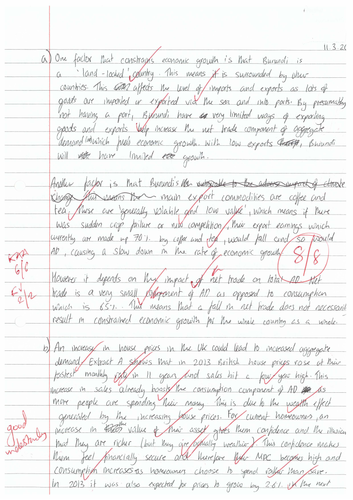 11.3.20
a) One factor that constrains economic growth is that Burundi is
a 'land-locked' country. This means it is surrounded by other
countries. This affects the level of imports and exports as lots of
goods are imported or exported via the sea and into ports. By presumably
not having a port, Burundi have very limited ways of exporting
goods and exports help increase the net trade component of aggregate
demand which economic growth with low exports, Burundi
will have limited growth.
Another factor is that Burundi's
main export commodities are coffee and
tea. These are 'generally volatile and low value', which means if there
was sudden crop failure or competition, their export earnings which
currently are made up 70% by coffee and tea, would fall and so would
AD, causing a slow down in the rate of economic growth.
8/8
KAA
6/6
EV
2/2
However it depends on the impact of net trade on total AD. Net
trade is a very small component of AD as opposed to consumption
which is 65%. This means that a fall in net trade does not necessarily
result in constrained economic growth for the whole country as a whole.
b) An increase in house prices in the UK could lead to increased aggregate
demand. Extract A shows that in 2013 British house prices rose at their
fastest monthly rate in 11 years and sales hit a year high. This
increase in sales already boosts the consumption component of AD as
more people are spending their money. This is due to the wealth effect
generated by the increasing house prices. For current homeowners, an
increase in value of their asset gives them confidence and the illusion
that they are richer (but they are equally wealthier). This confidence makes
them feel financially secure and therefore their MPC becomes high and
consumption increases as homeowners choose to spend rather than save.
In 2013 it was also expected for prices to grow by 2.6% in the next
good